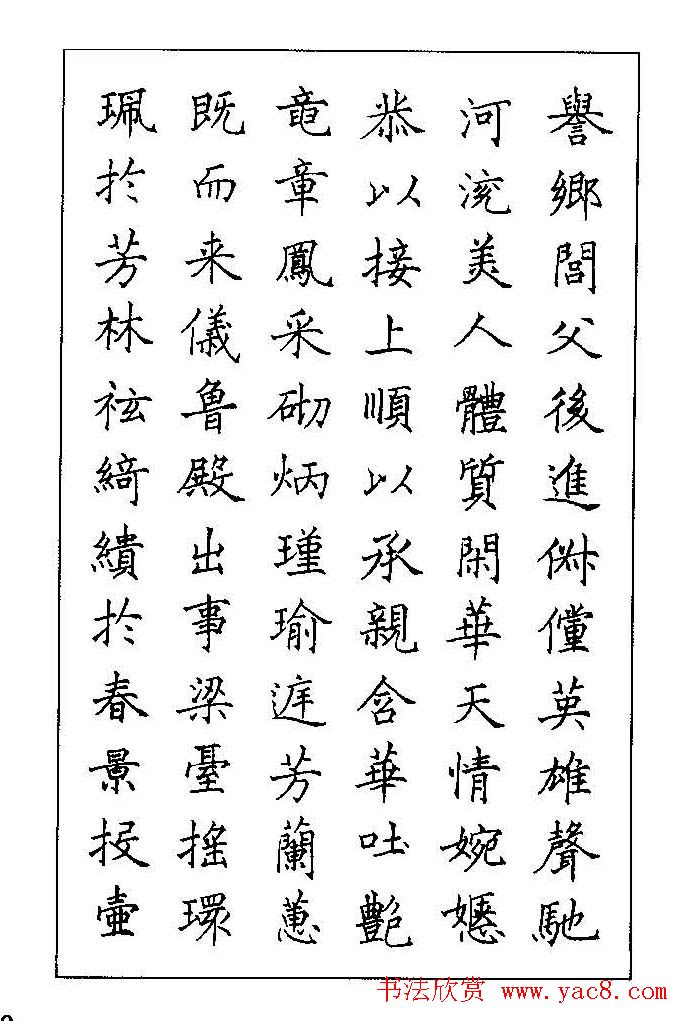 譽鄉閭父後進俶儻英雄聲馳
河渷美人體質閑華天情婉嫕
恭以接上順以承親含華吐艷
竜章鳳采砌炳瑾瑜庭芳蘭蕙
既而来儀魯殿出事梁臺搖環
珮於芳林袨綺繢於春景投壺
书法欣赏 www.yac8.com